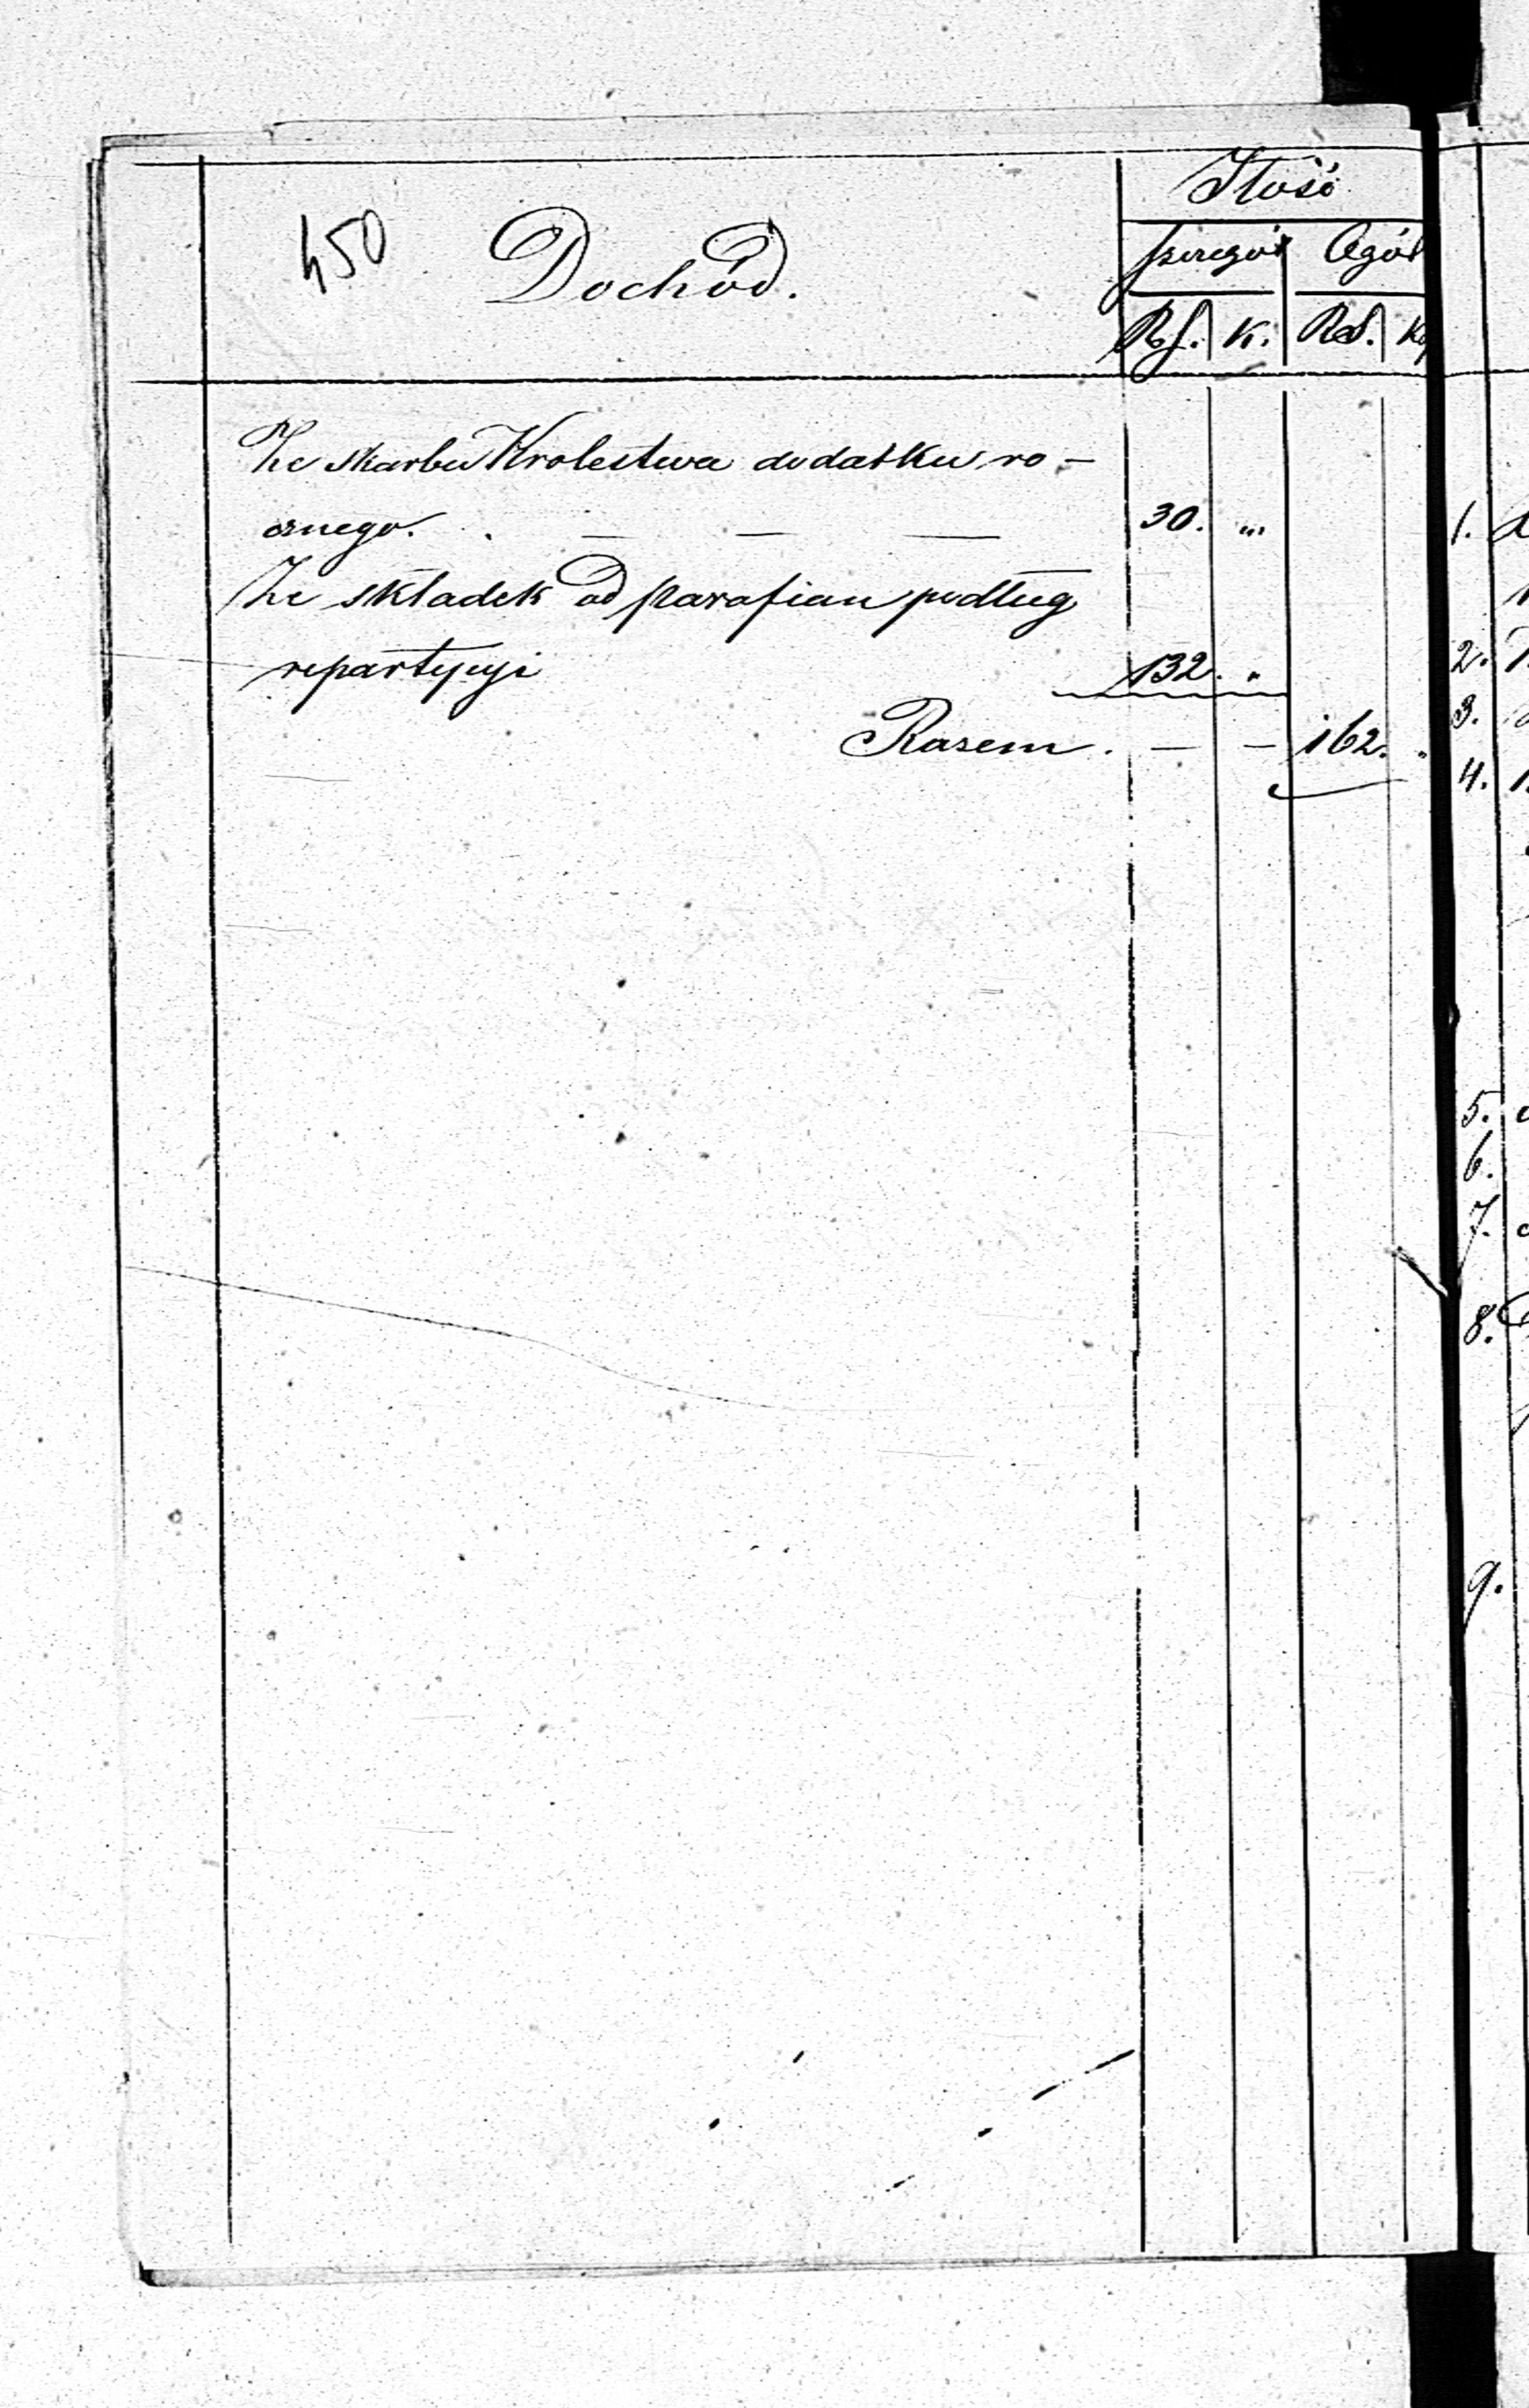 Ilość
450 Dochód.
szczegół Ogół
Rs. K. RS. Ko
Ze skarbu Krolestwa dodatku ro-
cznego. . — — — 30. „
Ze składek od parafian podług
repartycyi 132. „
Razem. — — 162. „
1.
2.
3.
4.
5.
6.
7.
8.
9.